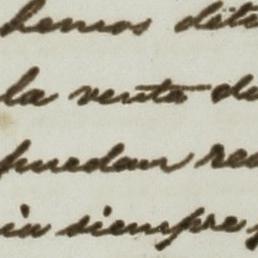 hemos dete
la venta de
puedan rea
ia siempre y